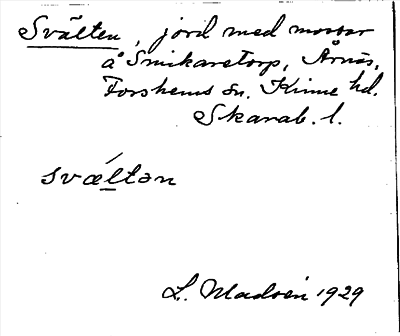 Svälten, jord med mossar
å Smikaretorp, Årnäs,
Forshems sn. Kinne hd.
Skarab. l.
svǽltən
L. Madsén 1929